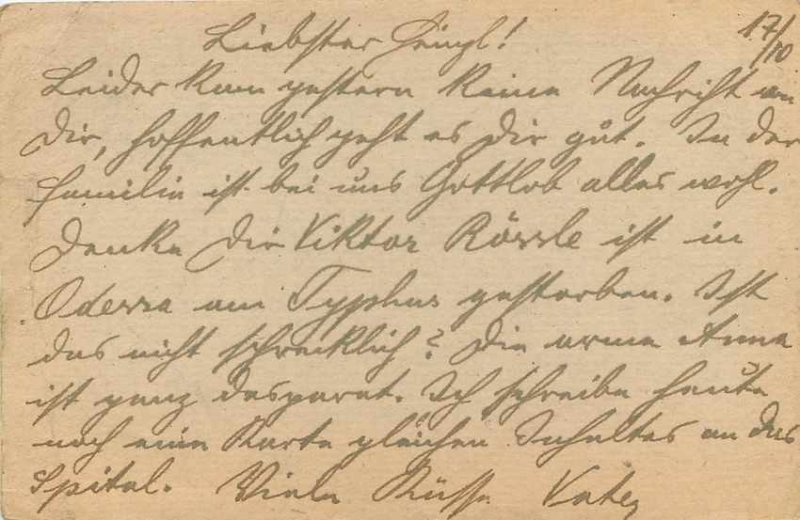 17/10
Liebster Heinzl!
Leider kam gestern keine Nachricht von
Dir, hoffentlich geht es Dir gut. In der
Familie ist bei uns Gottlob alles wohl.
Denke Dir Viktor Rössle ist in
Odessa am Typhus gestorben. Ist
das nicht schrecklich? Die arme Anna
ist ganz desparat. Ich schreibe heute
noch eine Karte gleichen Inhaltes an das
Spital. Viele Küsse Vater